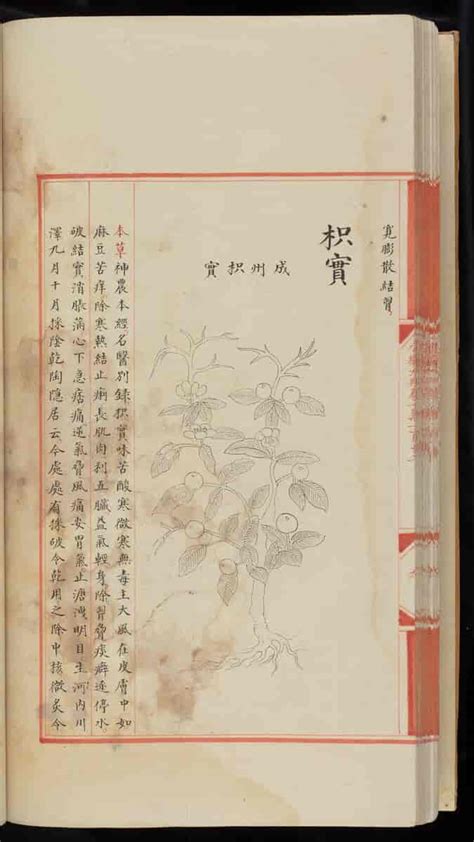 寬膨散結胷
枳實
成州枳實
本草神農本經名醫別錄枳實味苦酸寒微寒無毒主大風在皮膚中如
麻豆苦痒除寒熱結止痢長肌肉利五臟益氣輕身除胷脅痰癖逐停水
破結實消脹滿心下急痞痛逆氣脅風痛安胃氣止溏洩明目生河內川
澤九月十月採陰乾陶隱居云今處處有採破令乾用之除中核微炙令